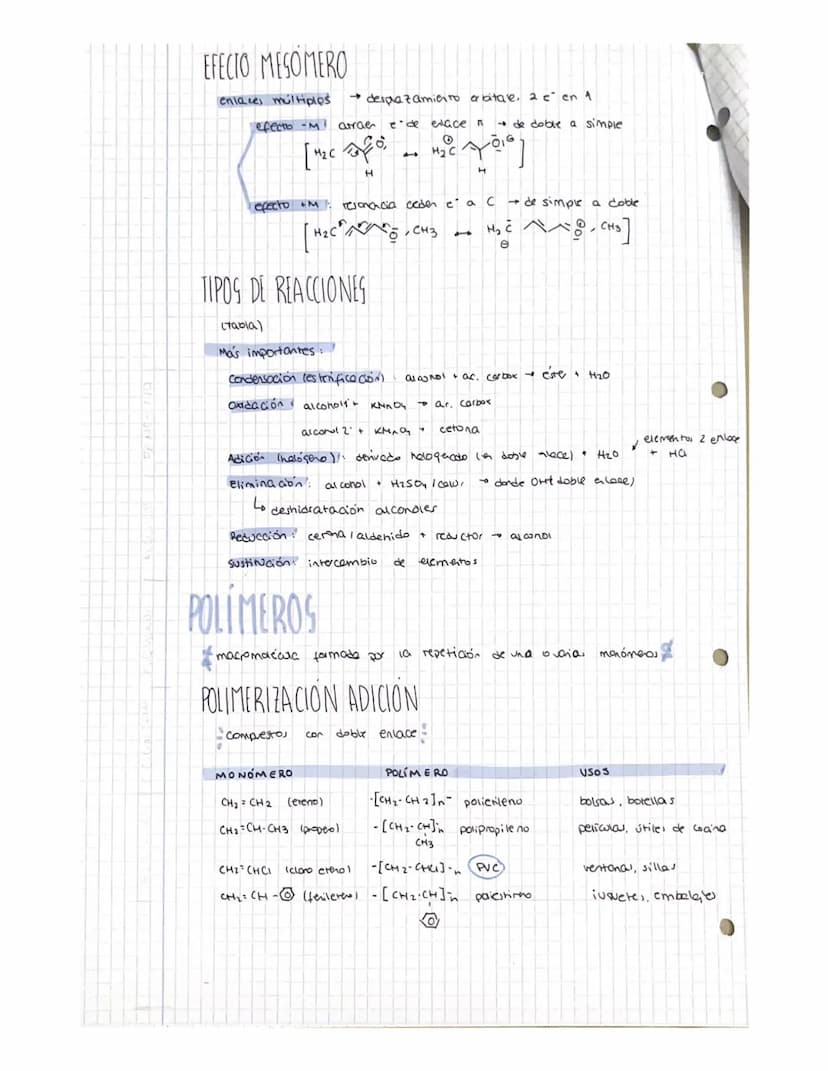 EFECTO MESÓMERO
enlaces múltiples → desplazamiento orbital. 2 e⁻ en
efecto -M: atraen e⁻ de enlace π → de doble a simple
[H₂C O, H ↔ H₂C ⊕ O|⊖ H]
efecto +M: resonancia ceden e⁻ a C → de simple a doble
[H₂C O, CH₃ ↔ H₂C ⊖ O ⊕, CH₃]
TIPOS DE REACCIONES
(tabla)
Más importantes:
Condensación (esterificación): alcohol + ac. carbox → éster + H₂O
Oxidación: alcohol 1º + KMnO₄ → ac. carbox
alcohol 2º + KMnO₄ → cetona
elementos 2 enlace
Adición (halógeno): derivado halogenado (en doble enlace) + H₂O + HCl
Eliminación: alcohol + H₂SO₄ / calor → donde OH doble enlace)
↳ deshidratación alcoholes
Reducción: cetona / aldehido + reductor → alcohol
Sustitución: intercambio de elementos
POLÍMEROS
* macromolécula formada por la repetición de una o varias monómeros *
POLIMERIZACIÓN ADICIÓN
Compuestos con doble enlace
MONÓMERO POLÍMERO USOS
CH₂=CH₂ (eteno) -[CH₂-CH₂]n- polietileno bolsas, botellas
CH₂=CH-CH₃ (propeno) -[CH₂-CH]n- polipropileno películas, útiles de cocina
CH₃
CH₂=CHCl (cloro eteno) -[CH₂-CHCl]-n PVC ventanas, sillas
CH₂=CH- (fenileteno) -[CH₂-CH]n- poliestireno juguetes, embalajes